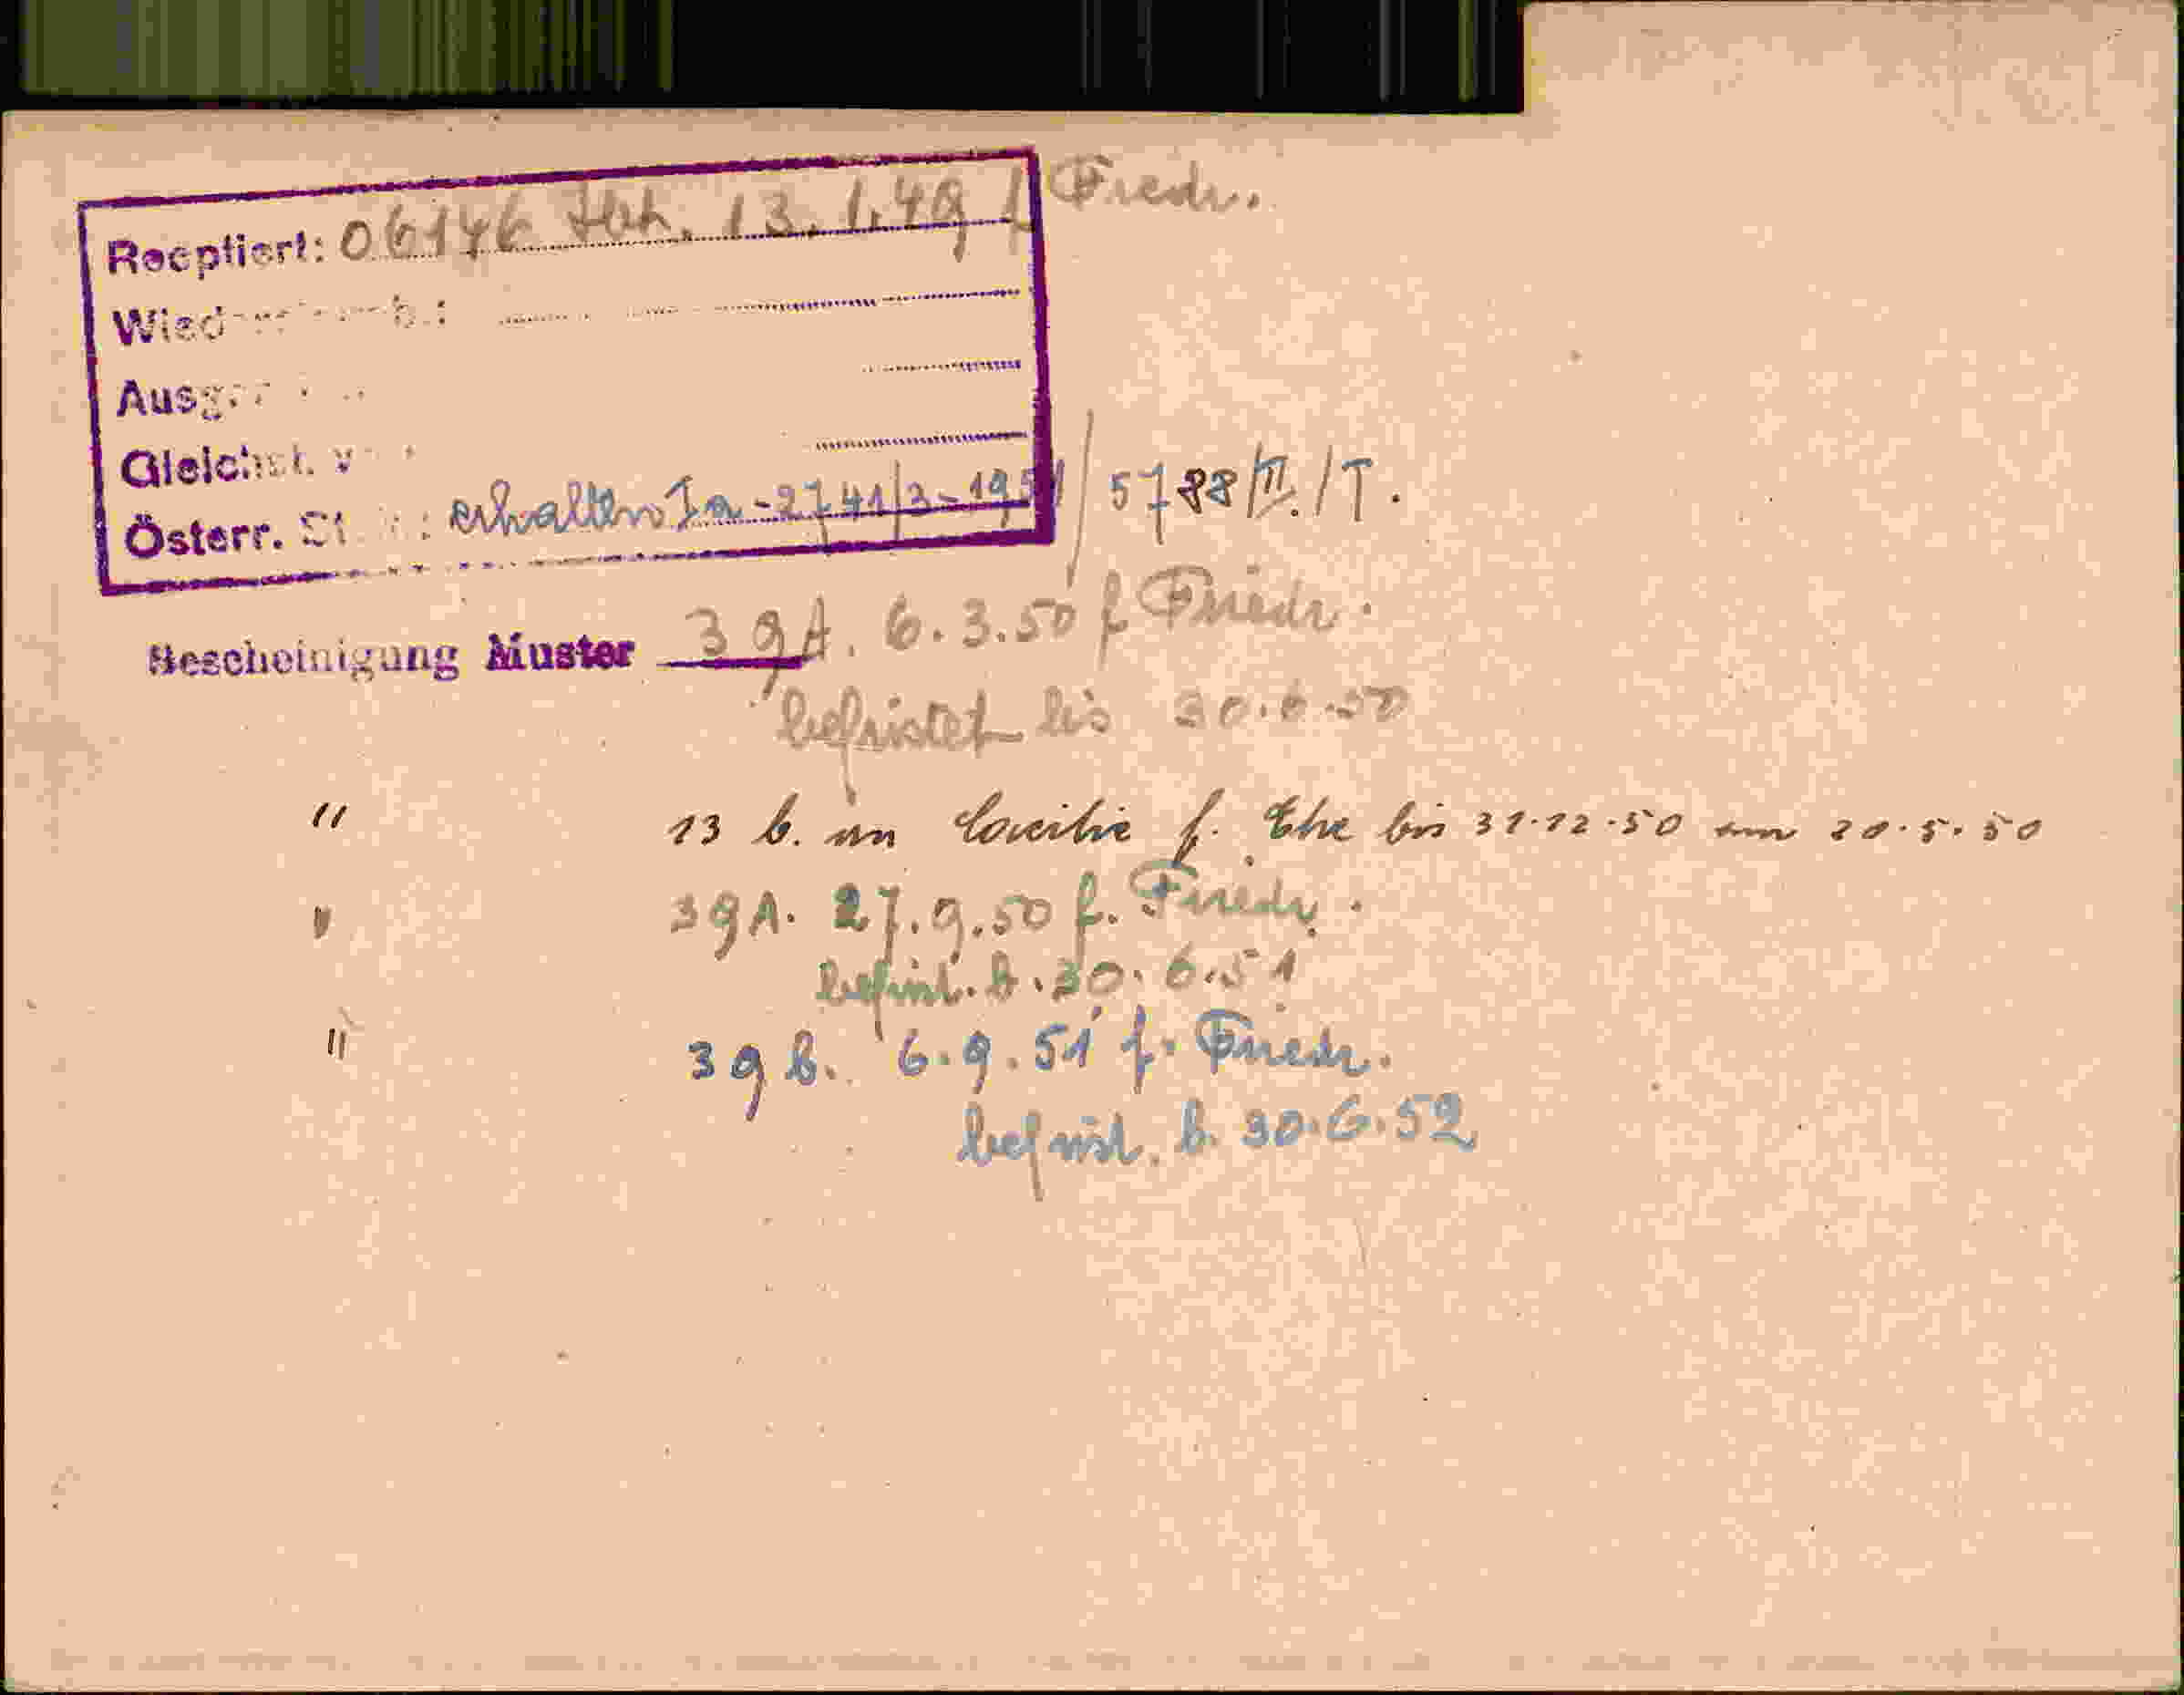 Recptiert: 06146 13.1.49 f Friedr.
Österr. St : erhalten Ia-2741/3-1951/5788/II./T.
Bescheinigung Muster 39A. 6.3.50 f Friedr.
befristet bis 30.6.50
" 13 b. f. Ehe bis 31.12.50 20.5.50
" 39A. 27.9.50 f. Friedr.
befrist. b. 30.6.51
" 39 b. 6.9.51 f. Friedr.
befrist. b. 30.6.52